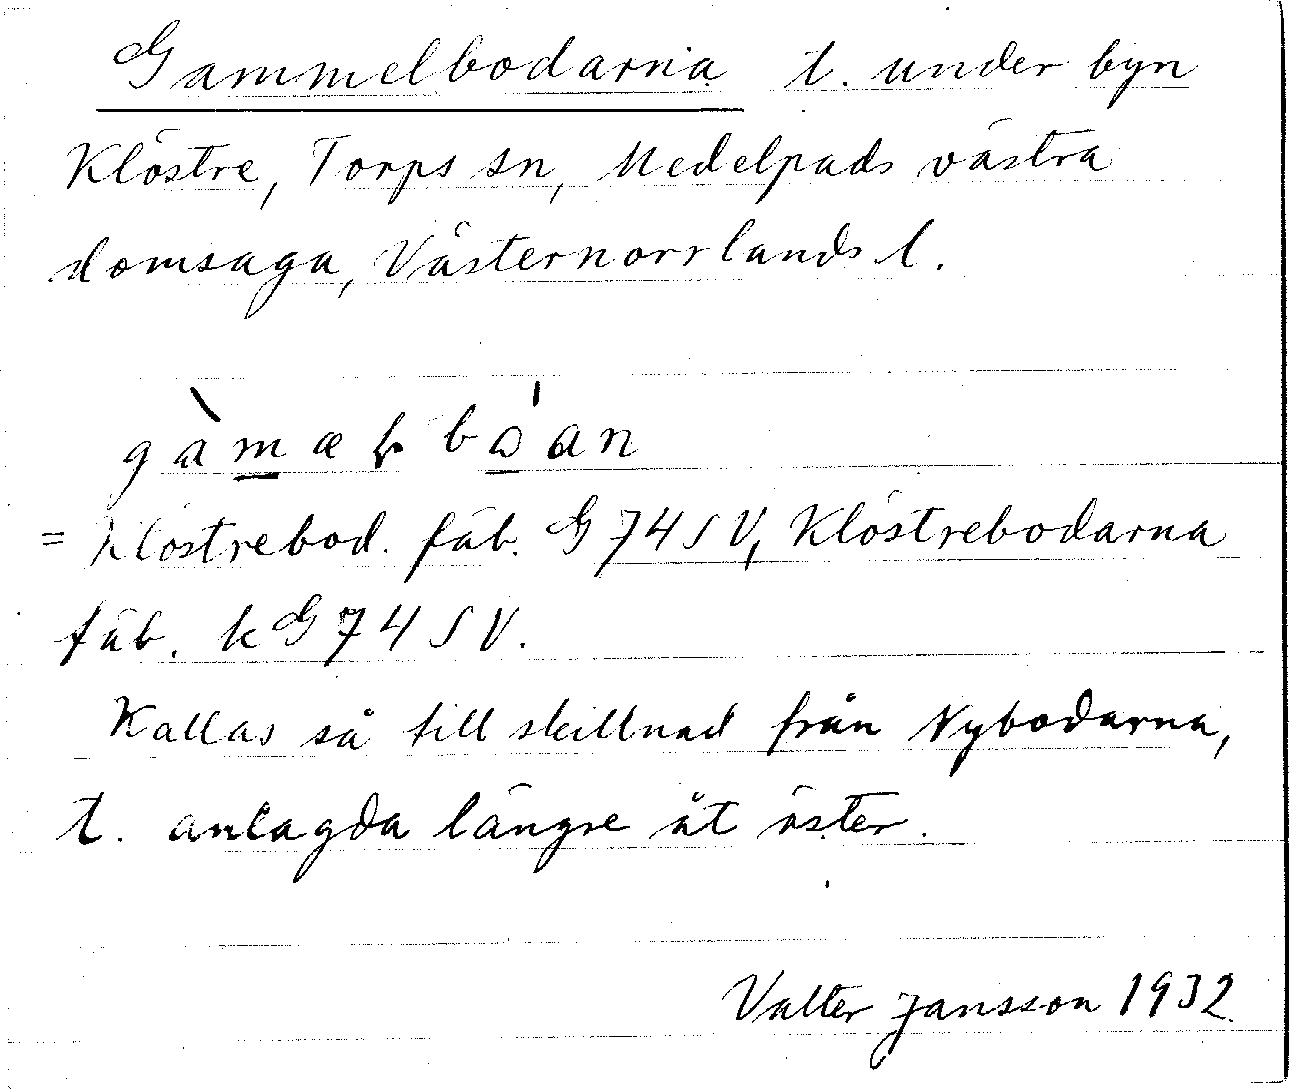 Gammelbodarna t. under byn
Klöstre, Torps sn, Medelpads västra
domsaga, Västernorrlands l.
= Klöstrebod. fäb. G 74 SV, Klöstrebodarna
fäb. k G 74 SV.
Kallas så till skillnad från Nybodarna,
t. anlagda längre åt öster.
Valter Jansson 1932.